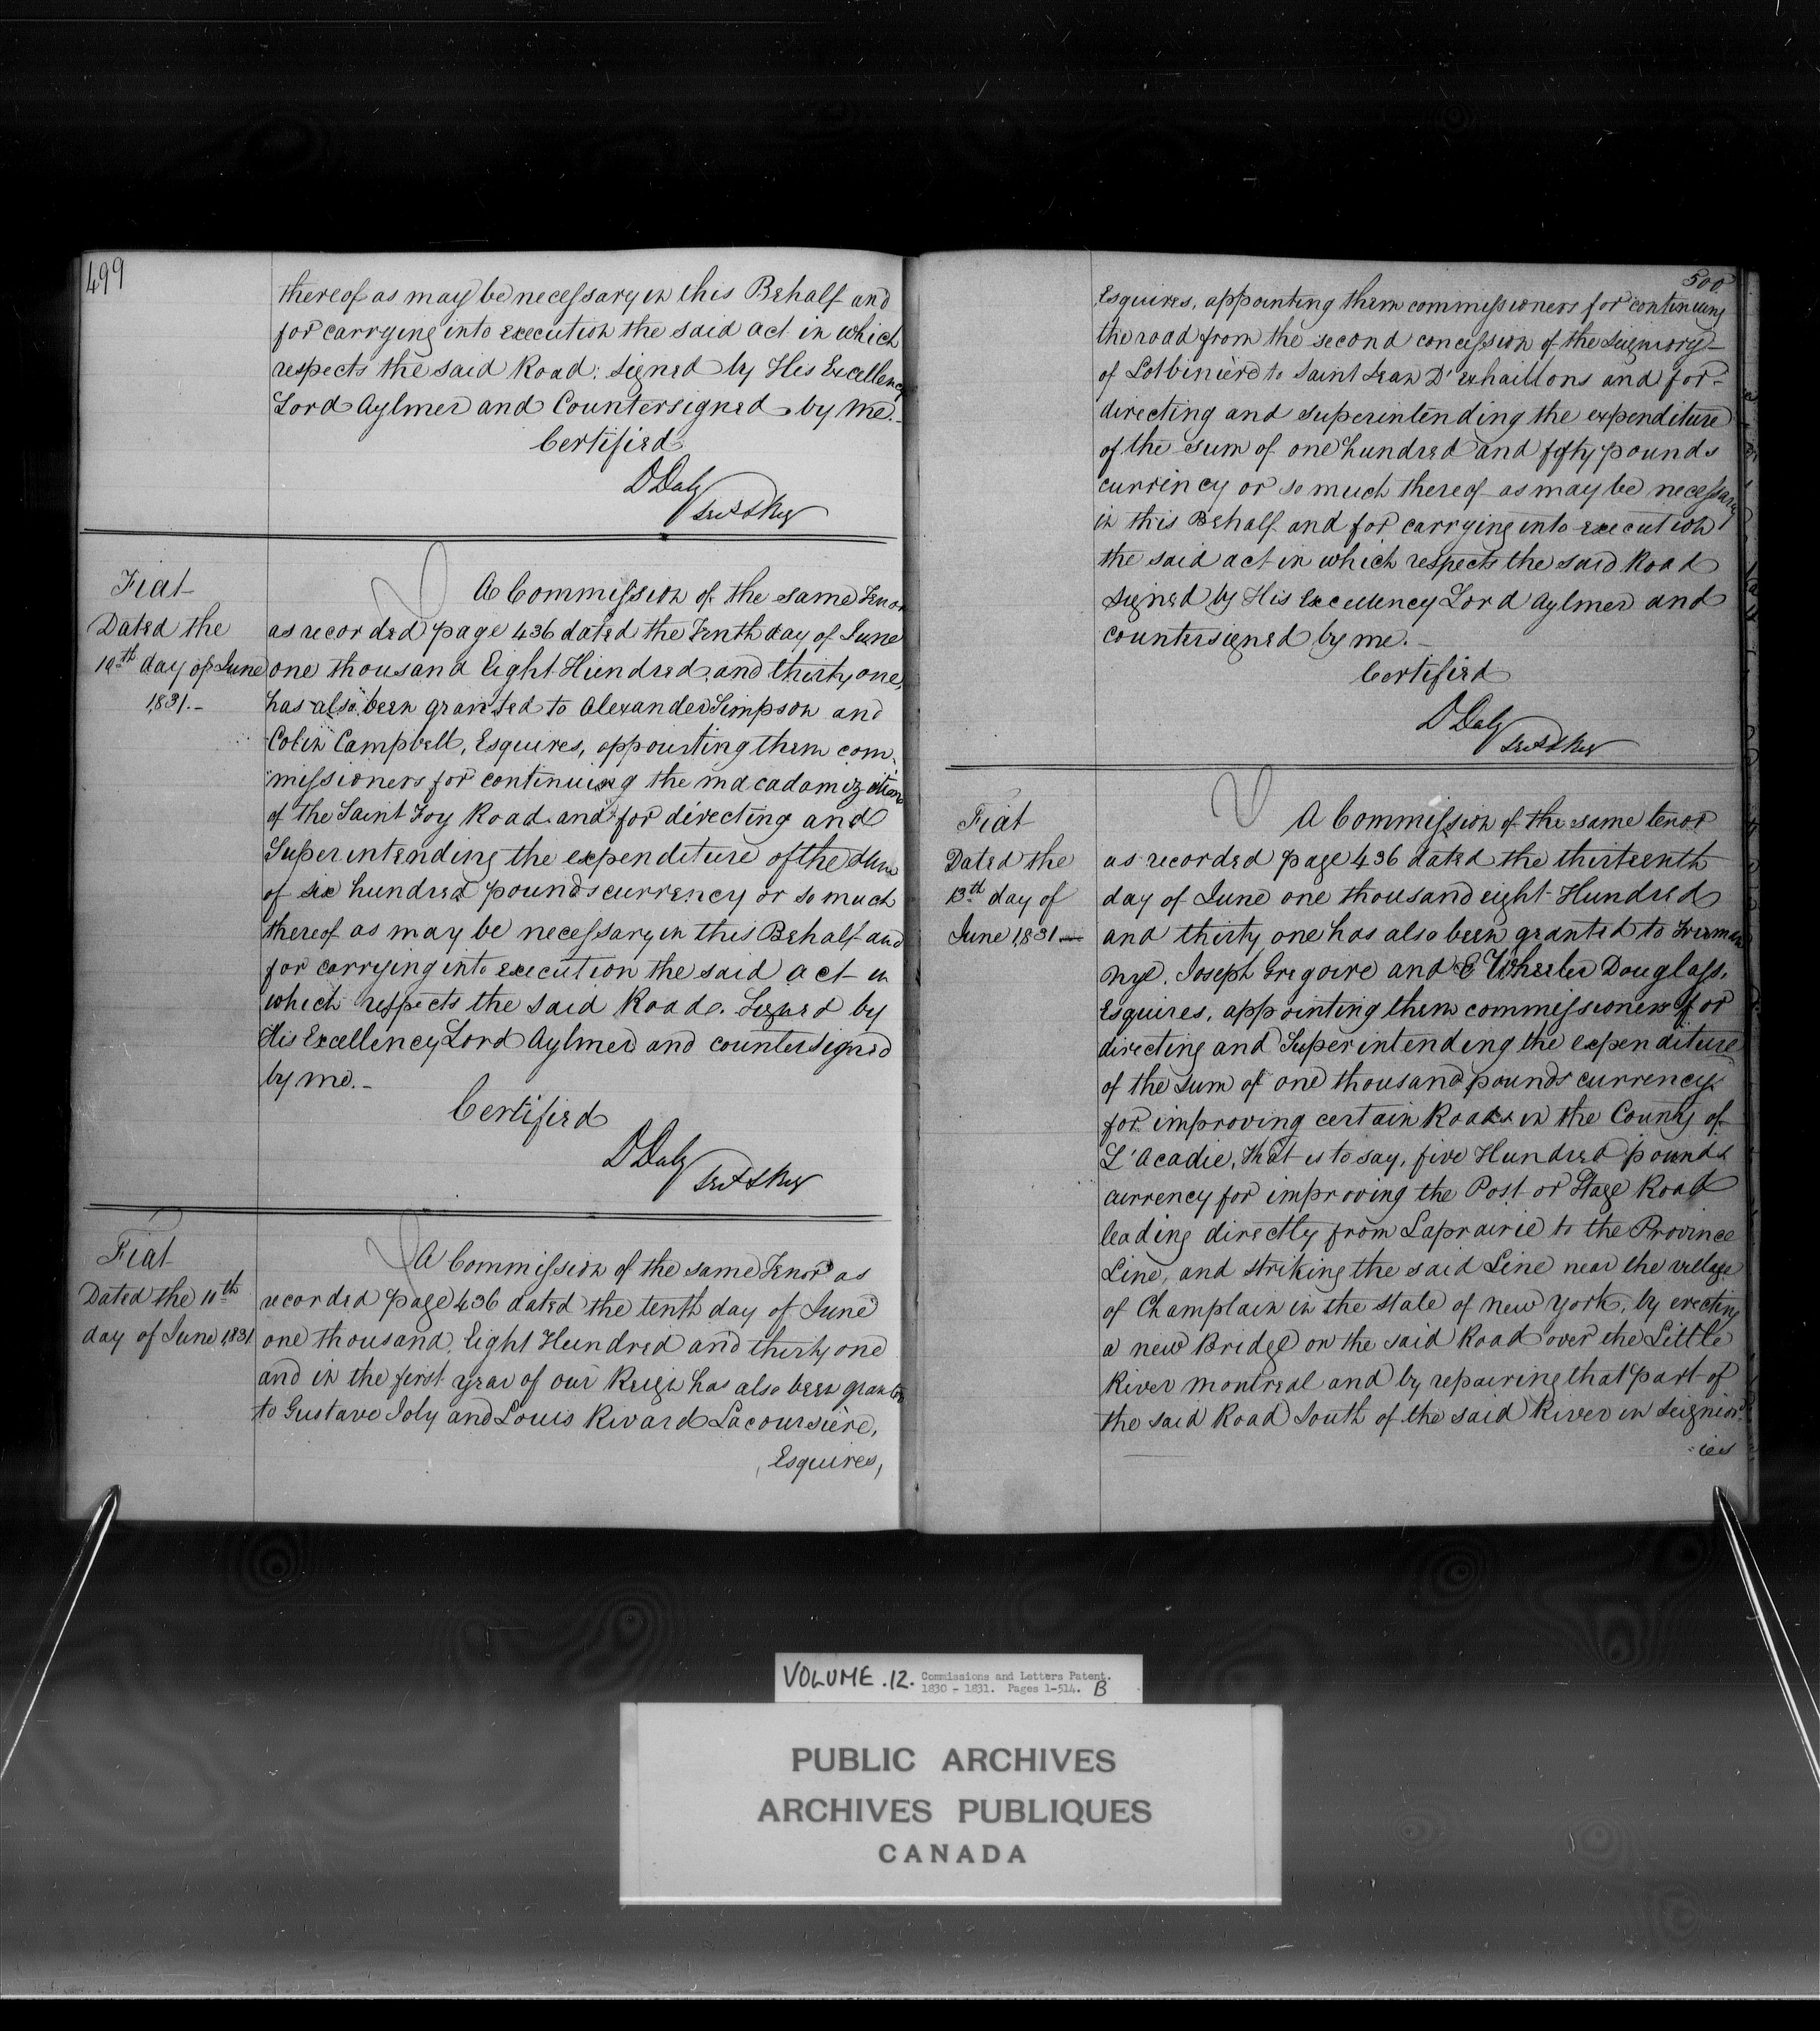 499
thereof as may be necessary in this Behalf and
for carrying into execution the said act in which
respects the said Road: signed by His Excellency
Lord Aylmer and Countersigned by me.-
Certified
D Daly
Fiat
Dated the
10th day of June
1831.-
A Commission of the same Tenor
as recorded page 436 dated the Tenth day of June
one thousand Eight Hundred and thirty one,
has also been granted to Alexander Simpson and
Colin Campbell, Esquires, appointing them com-
missioners for continuing the macadamization
of the Saint Foy Road and for directing and
Superintending the expenditure of the sum
of six hundred pounds currency or so much
thereof as may be necessary in this Behalf and
for carrying into execution the said act in
which respects the said Road. Signed by
His Excellency Lord Aylmer and countersigned
by me.-
Certified
D Daly
Fiat
Dated the 11th
day of June 1831
A Commission of the same Tenor as
recorded page 436 dated the tenth day of June
one thousand, Eight Hundred and thirty one
and in the first year of our Reign has also been granted
to Gustave Joly and Louis Rivard Lacoursière,
Esquires,
500
Esquires, appointing them commissioners for continuing
the road from the second concession of the Seigniory
of Lotbinière to Saint Jean D'exhaillons and for
directing and superintending the expenditure
of the sum of one hundred and fifty pounds
currency or so much thereof as may be necessary
in this Behalf and for carrying into execution
the said act in which respects the said Road
signed by His Excellency Lord Aylmer and
countersigned by me.-
Certified
D Daly
Fiat
Dated the
13th day of
June 1831-
A Commission of the same tenor
as recorded page 436 dated the thirteenth
day of June one thousand eight Hundred
and thirty one has also been granted to Freeman
Nye, Joseph Gregoire and E Wheeler Douglass,
Esquires, appointing them commissioners for
directing and Superintending the expenditure
of the sum of one thousand pounds currency
for improving certain Roads in the County of
L'Acadie, that is to say, five Hundred pounds
currency for improving the Post or Stage Road
leading directly from Laprairie to the Province
Line, and striking the said Line near the village
of Champlain in the state of new york, by erecting
a new Bridge on the said Road over the Little
River montreal and by repairing that part of
the said Road South of the said River in Seignior-
-ies
VOLUME .12. Commissions and Letters Patent.
1830 - 1831. Pages 1-514. B
PUBLIC ARCHIVES
ARCHIVES PUBLIQUES
CANADA